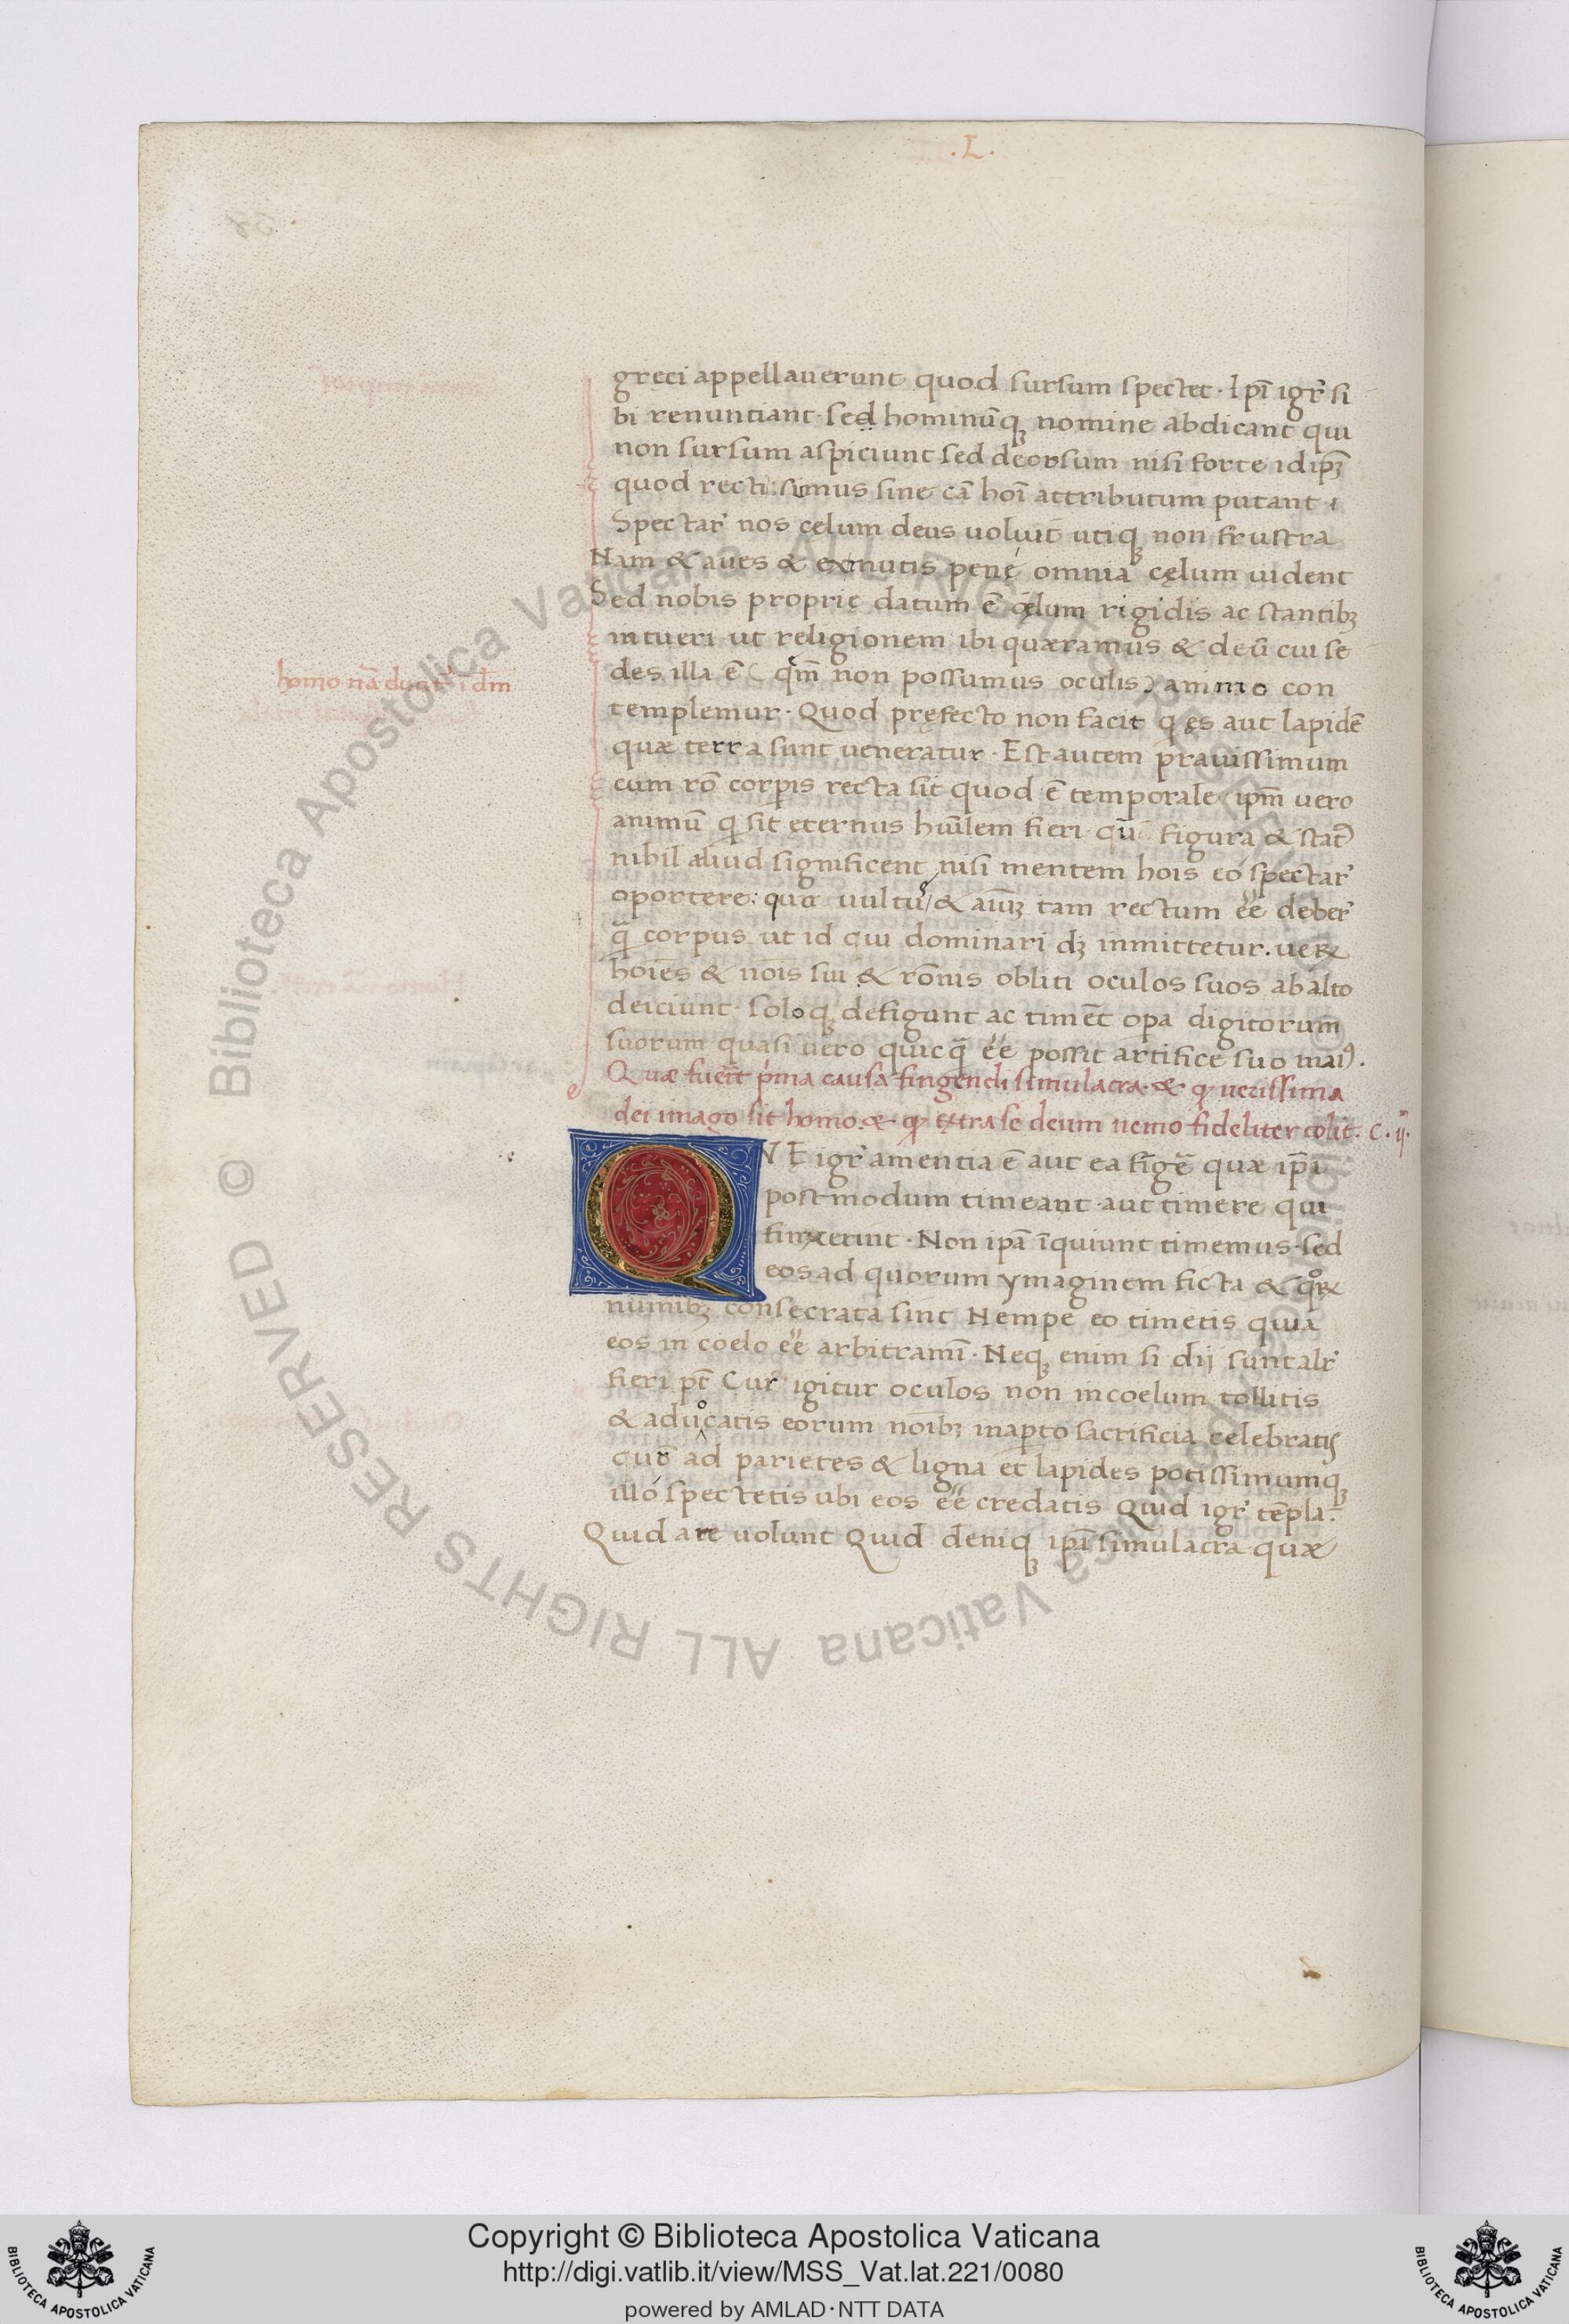 .L.
greci appellauerunt quod sursum spectet. Ipi̅ igr̃ si
bi renuntiant. sed hominu̅q; nomine abdicant qui
non sursum aspiciunt sed deorsum nisi forte idip̅ȝ
quod recti sumus sine ca̅ hoi̅ attributum putant
Spectar̃ nos cęlum deus uoluit utiq; non frustra
Nam & aues & ex mutis penę omnia cęlum uident
Sed nobis proprie datum e̅ cęlum rigidis ac stantibȝ
intueri ut religionem ibi quæramus & deu̅ cui se
des illa e̅ ( qm̅ non possumus oculis) animo con
homo na̅ i dm̅
templemur. Quod pręfecto non facit q ęs aut lapide̅
quæ terra sunt ueneratur. Est autem prauissimum
cum ro̅ corpis recta sit quod e̅ temporale ipm̅ uero
animu̅ q sit ęternus hui̅lem fieri cu̅ figura & stat9
nihil aliud significent nisi mentem hois eo spectar̃
oportere: quo uultu & aiu̅ȝ tam rectum ee̅ deber̃
q̅ corpus ut id cui dominari dȝ inmittetur. ueꝝ
hoies & nois sui & ro̅nis obliti oculos suos ab alto
deiciunt. soloq; defigunt ac time̅t opa digitorum
suorum quasi uero quicq̅ ee̅ possit artifice suo mai9.
Quæ fuerit pima causa fingendi simulacra. & q uerissima
dei imago sit homo. & q extra se deum nemo fideliter colit. C. ij.
QVE igr̃ amentia e̅ aut ea fi̅ge̅ quæ ipi̅
postmodum timeant aut timere qui
finxerint. Non ipa̅ i̅quiunt timemus. sed
eos ad quorum ymaginem ficta & qoꝝ
numibȝ consecrata sint Nempe eo timetis quia
eos in coelo ee̅ arbitrami̅. Neq; enim si dij sunt alr̃
fieri pt̅ Cur igitur oculos non incoelum tollitis
& aduocatis eorum noi̅bȝ inapto sacrificia celebratis
cur ad parietes & ligna et lapides potissimumq;
illo spectetis ubi eos ee̅ credatis Quid igr̃ te̅pla.
Quid are uolunt Quid deniq; ipi̅ simulacra quæ
© Biblioteca Apostolica Vaticana ALL RIGHTS RESERVED
Copyright © Biblioteca Apostolica Vaticana
http://digi.vatlib.it/view/MSS_Vat.lat.221/0080
powered by AMLAD·NTT DATA
BIBLIOTECA APOSTOLICA VATICANA
BIBLIOTECA APOSTOLICA VATICANA